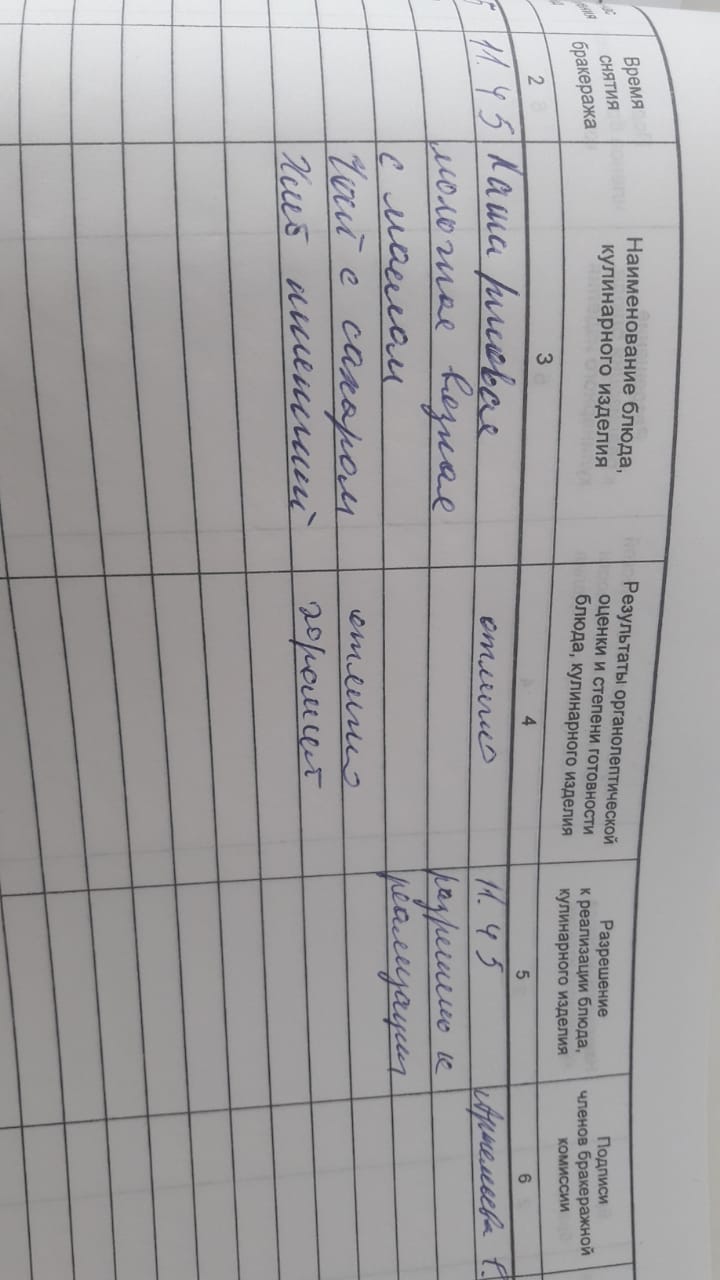 Время снятия бракеража
Наименование блюда, кулинарного изделия
Результаты органолептической оценки и степени готовности блюда, кулинарного изделия
Разрешение к реализации блюда, кулинарного изделия
Подписи членов бракеражной комиссии
2 3 4 5 6
11.45 Каша рисовая отлично 11.45 Артемьева
молочная вязкая разрешено к
с маслом реализации
Чай с сахаром отлично
Хлеб пшеничный хороший